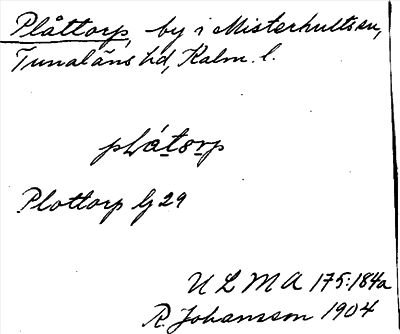 Plåttorp, by i Misterhults sn,
Tunaläns hd, Kalm. l.
plåtorp
Plottorp Gj 29
U L M A 175:184a
R. Johansson 1904